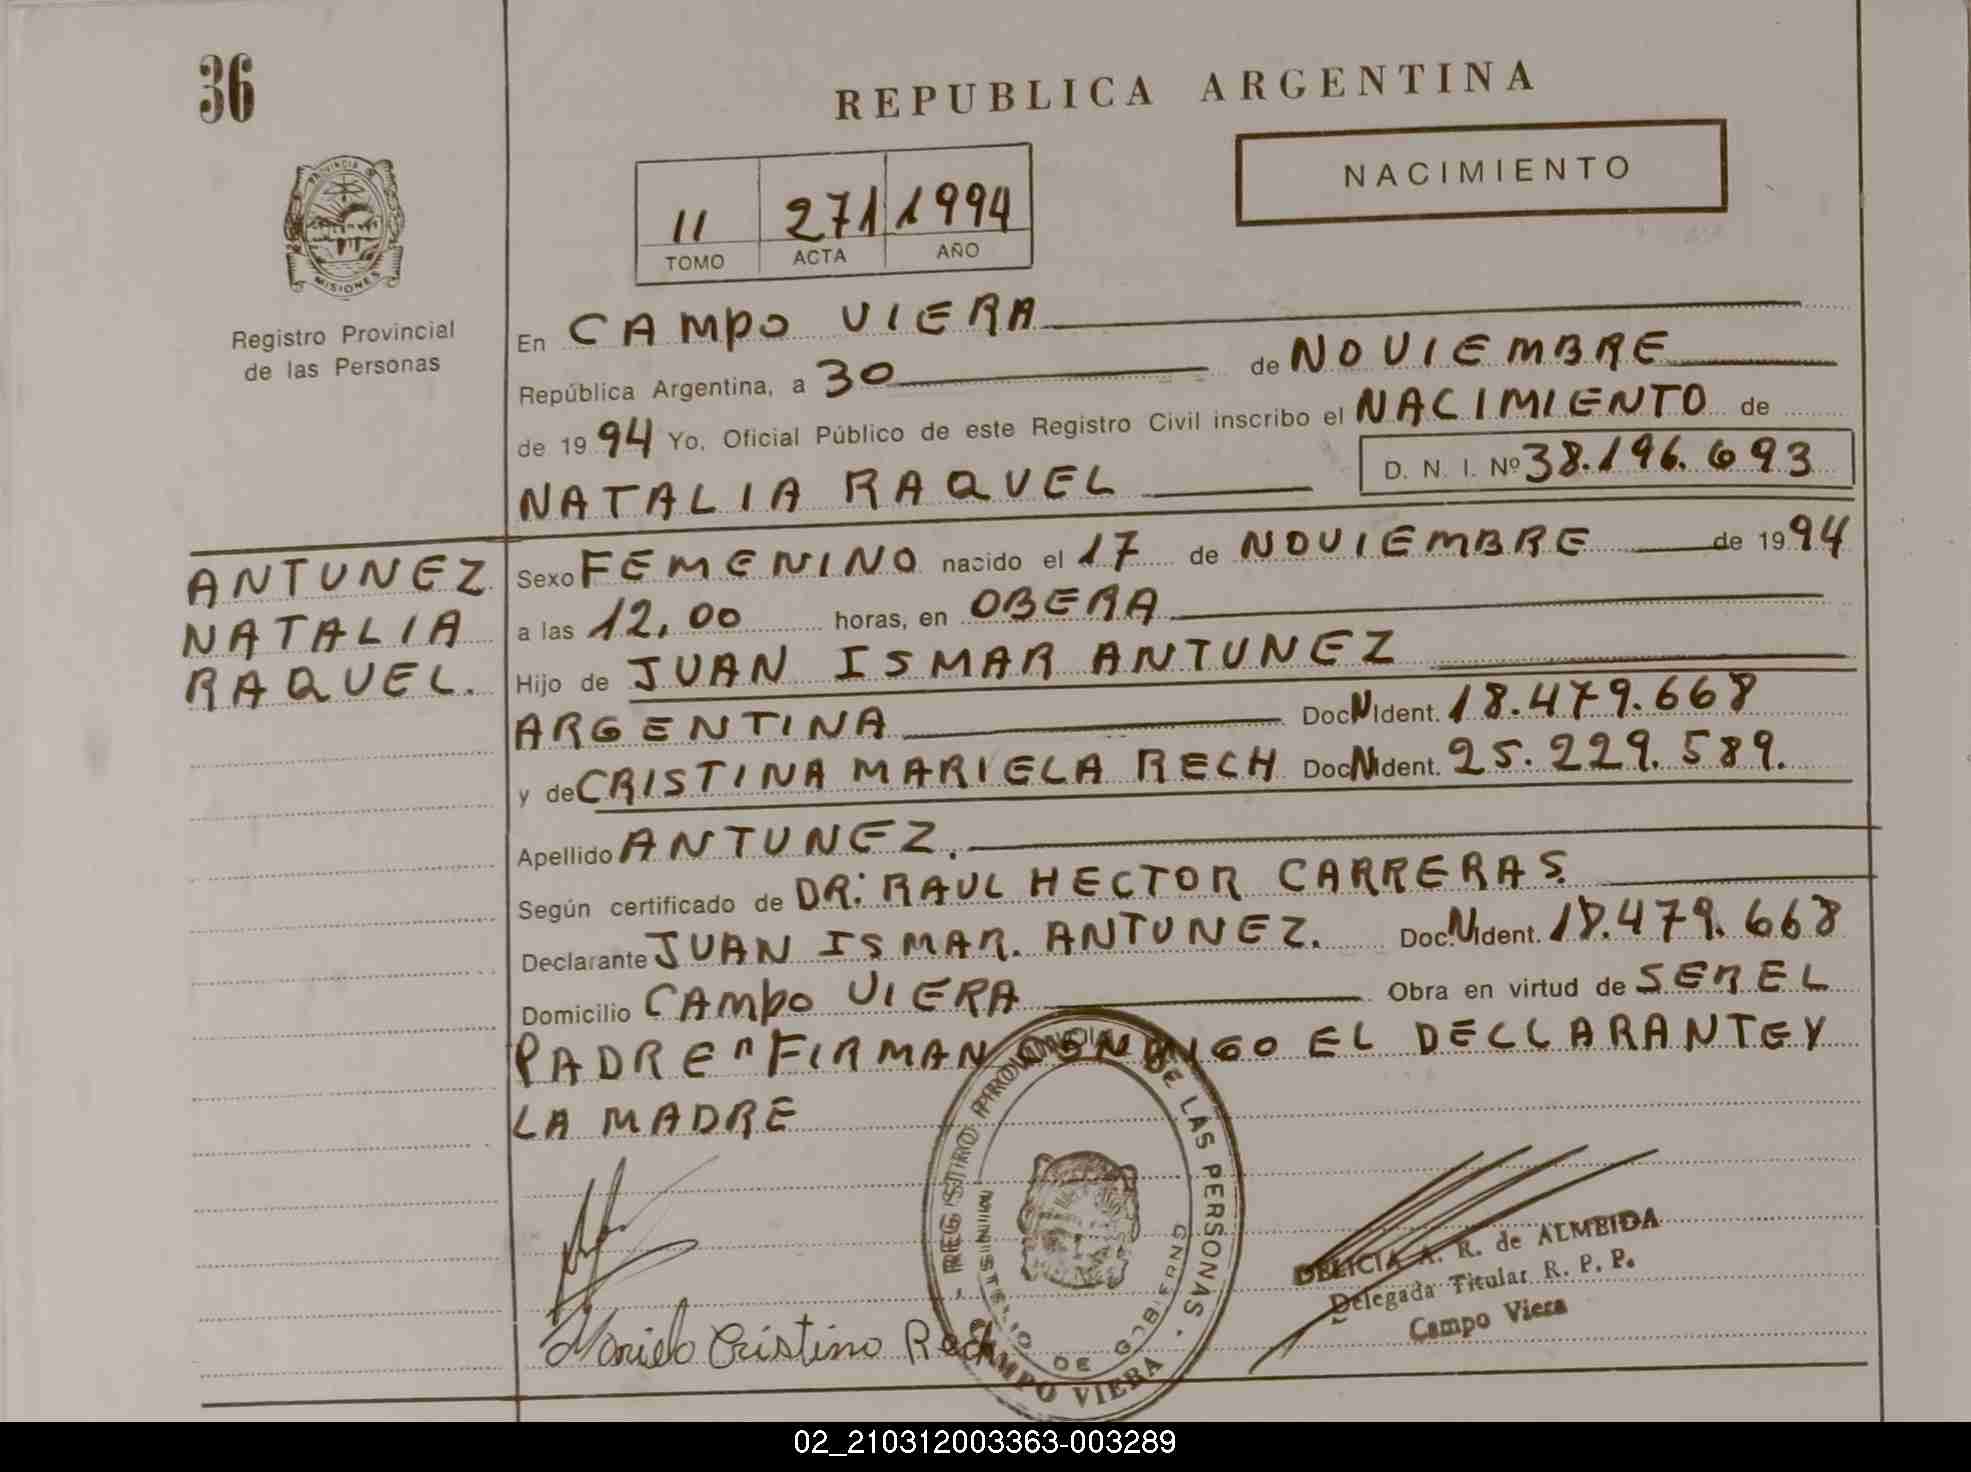 36
REPUBLICA ARGENTINA
NACIMIENTO
11 271 1994
TOMO ACTA AÑO
PROVINCIA DE
MISIONES
Registro Provincial
de las Personas
En CAMPO VIERA
República Argentina, a 30 de NOVIEMBRE
de 1994 Yo, Oficial Público de este Registro Civil inscribo el NACIMIENTO de
D. N. I. Nº 38.196.693
NATALIA RAQUEL
ANTUNEZ
NATALIA
RAQUEL.
Sexo FEMENINO nacido el 17 de NOVIEMBRE de 1994
a las 12,00 horas, en OBERA
Hijo de JUAN ISMAR ANTUNEZ
ARGENTINA Doc N Ident. 18.479.668
y de CRISTINA MARIELA RECH Doc N Ident. 25.229.589.
Apellido ANTUNEZ.
Según certificado de DR: RAUL HECTOR CARRERAS.
Declarante JUAN ISMAR. ANTUNEZ. Doc. N Ident. 18.479.668
Domicilio CAMPO VIERA Obra en virtud de SER EL
PADRE n FIRMAN CONMIGO EL DECLARANTE Y
LA MADRE
REGISTRO PROVINCIAL DE LAS PERSONAS
MINISTERIO DE GOBIERNO
CAMPO VIERA
Mariela Cristina Rech
DELICIA A. R. de ALMEIDA
Delegada Titular R. P. P.
Campo Viera
02_210312003363-003289